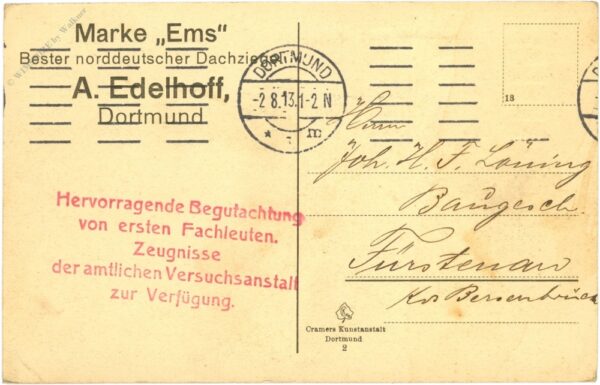 Marke „Ems"
Bester norddeutscher Dachziegel
A. Edelhoff,
Dortmund
DORTMUND
-2.8.13.1-2 N
* m
18
Hervorragende Begutachtung
von ersten Fachleuten.
Zeugnisse
der amtlichen Versuchsanstalt
zur Verfügung.
Herrn
Joh. H. F. Löning
Baugesch.
Fürstenau
Krs Bersenbrück
Cramers Kunstanstalt
Dortmund
2